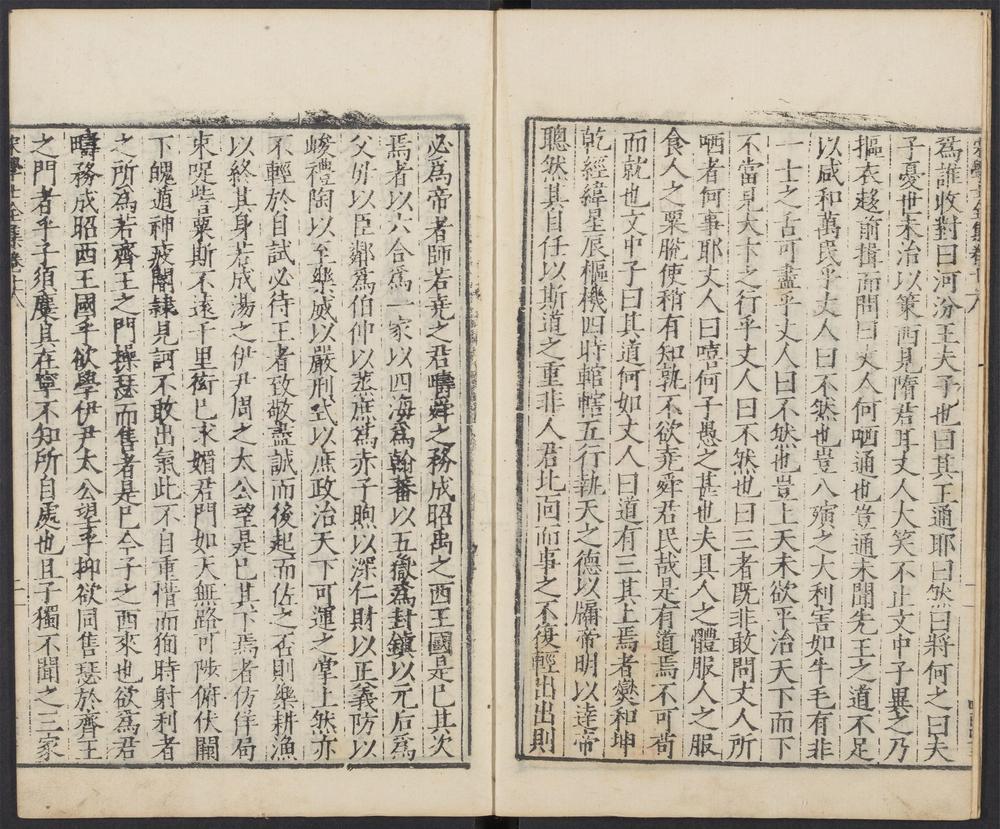 宋學士全集卷十八
為誰收對曰河汾王夫子也曰其王通耶曰然曰將何之曰夫
子憂世未治以策西見隋君耳丈人大笑不止文中子異之乃
摳衣趍前揖而問曰丈人何哂通也豈通未聞先王之道不足
以咸和萬民乎丈人曰不然也豈八殥之大利害如牛毛有非
一士之舌可盡乎丈人曰不然也豈上天未欲平治天下而下
不當見大卞之行乎丈人曰不然也曰三者既非敢問丈人所
哂者何事耶丈人曰嘻何子愚之甚也夫具人之體服人之服
食人之粟脫使稍有知孰不欲堯舜君民哉是有道焉不可苟
而就也文中子曰其道何如丈人曰道有三其上焉者爕和坤
乾經緯星辰樞機四時轄轄五行執天之德以牖帝明以達帝
聰然其自任以斯道之重非人君北面而事之不復輕出出則
必為帝者師若堯之君疇舜之務成昭禹之西王國是已其次
焉者以六合為一家以四海為翰蕃以五嶽為封鎮以元后為
父毋以臣鄰為伯仲以蒸庶為赤子煦以深仁財以正義防以
峻禮陶以至樂威以嚴刑式以庶政治天下可運之掌上然亦
不輕於自試必待王者致敬盡誠而後起而佐之否則樂耕漁
以終其身若成湯之伊尹周之太公望是已其下焉者仿佯局
束哫訾粟斯不遠千里衒已求媚君門如天無路可陟俯伏闕
下魄遁神疲閽隸見訶不敢出氣此不自重惜而徇時射利者
之所為若齊王之門操瑟而售者是已今子之西來也欲為君
疇務成昭西王國乎欲學伊尹太公望乎抑欲同售瑟於齊王
之門者乎子須麋具在寧不知所自處也且子獨不聞之三家
宋學士全集卷十八